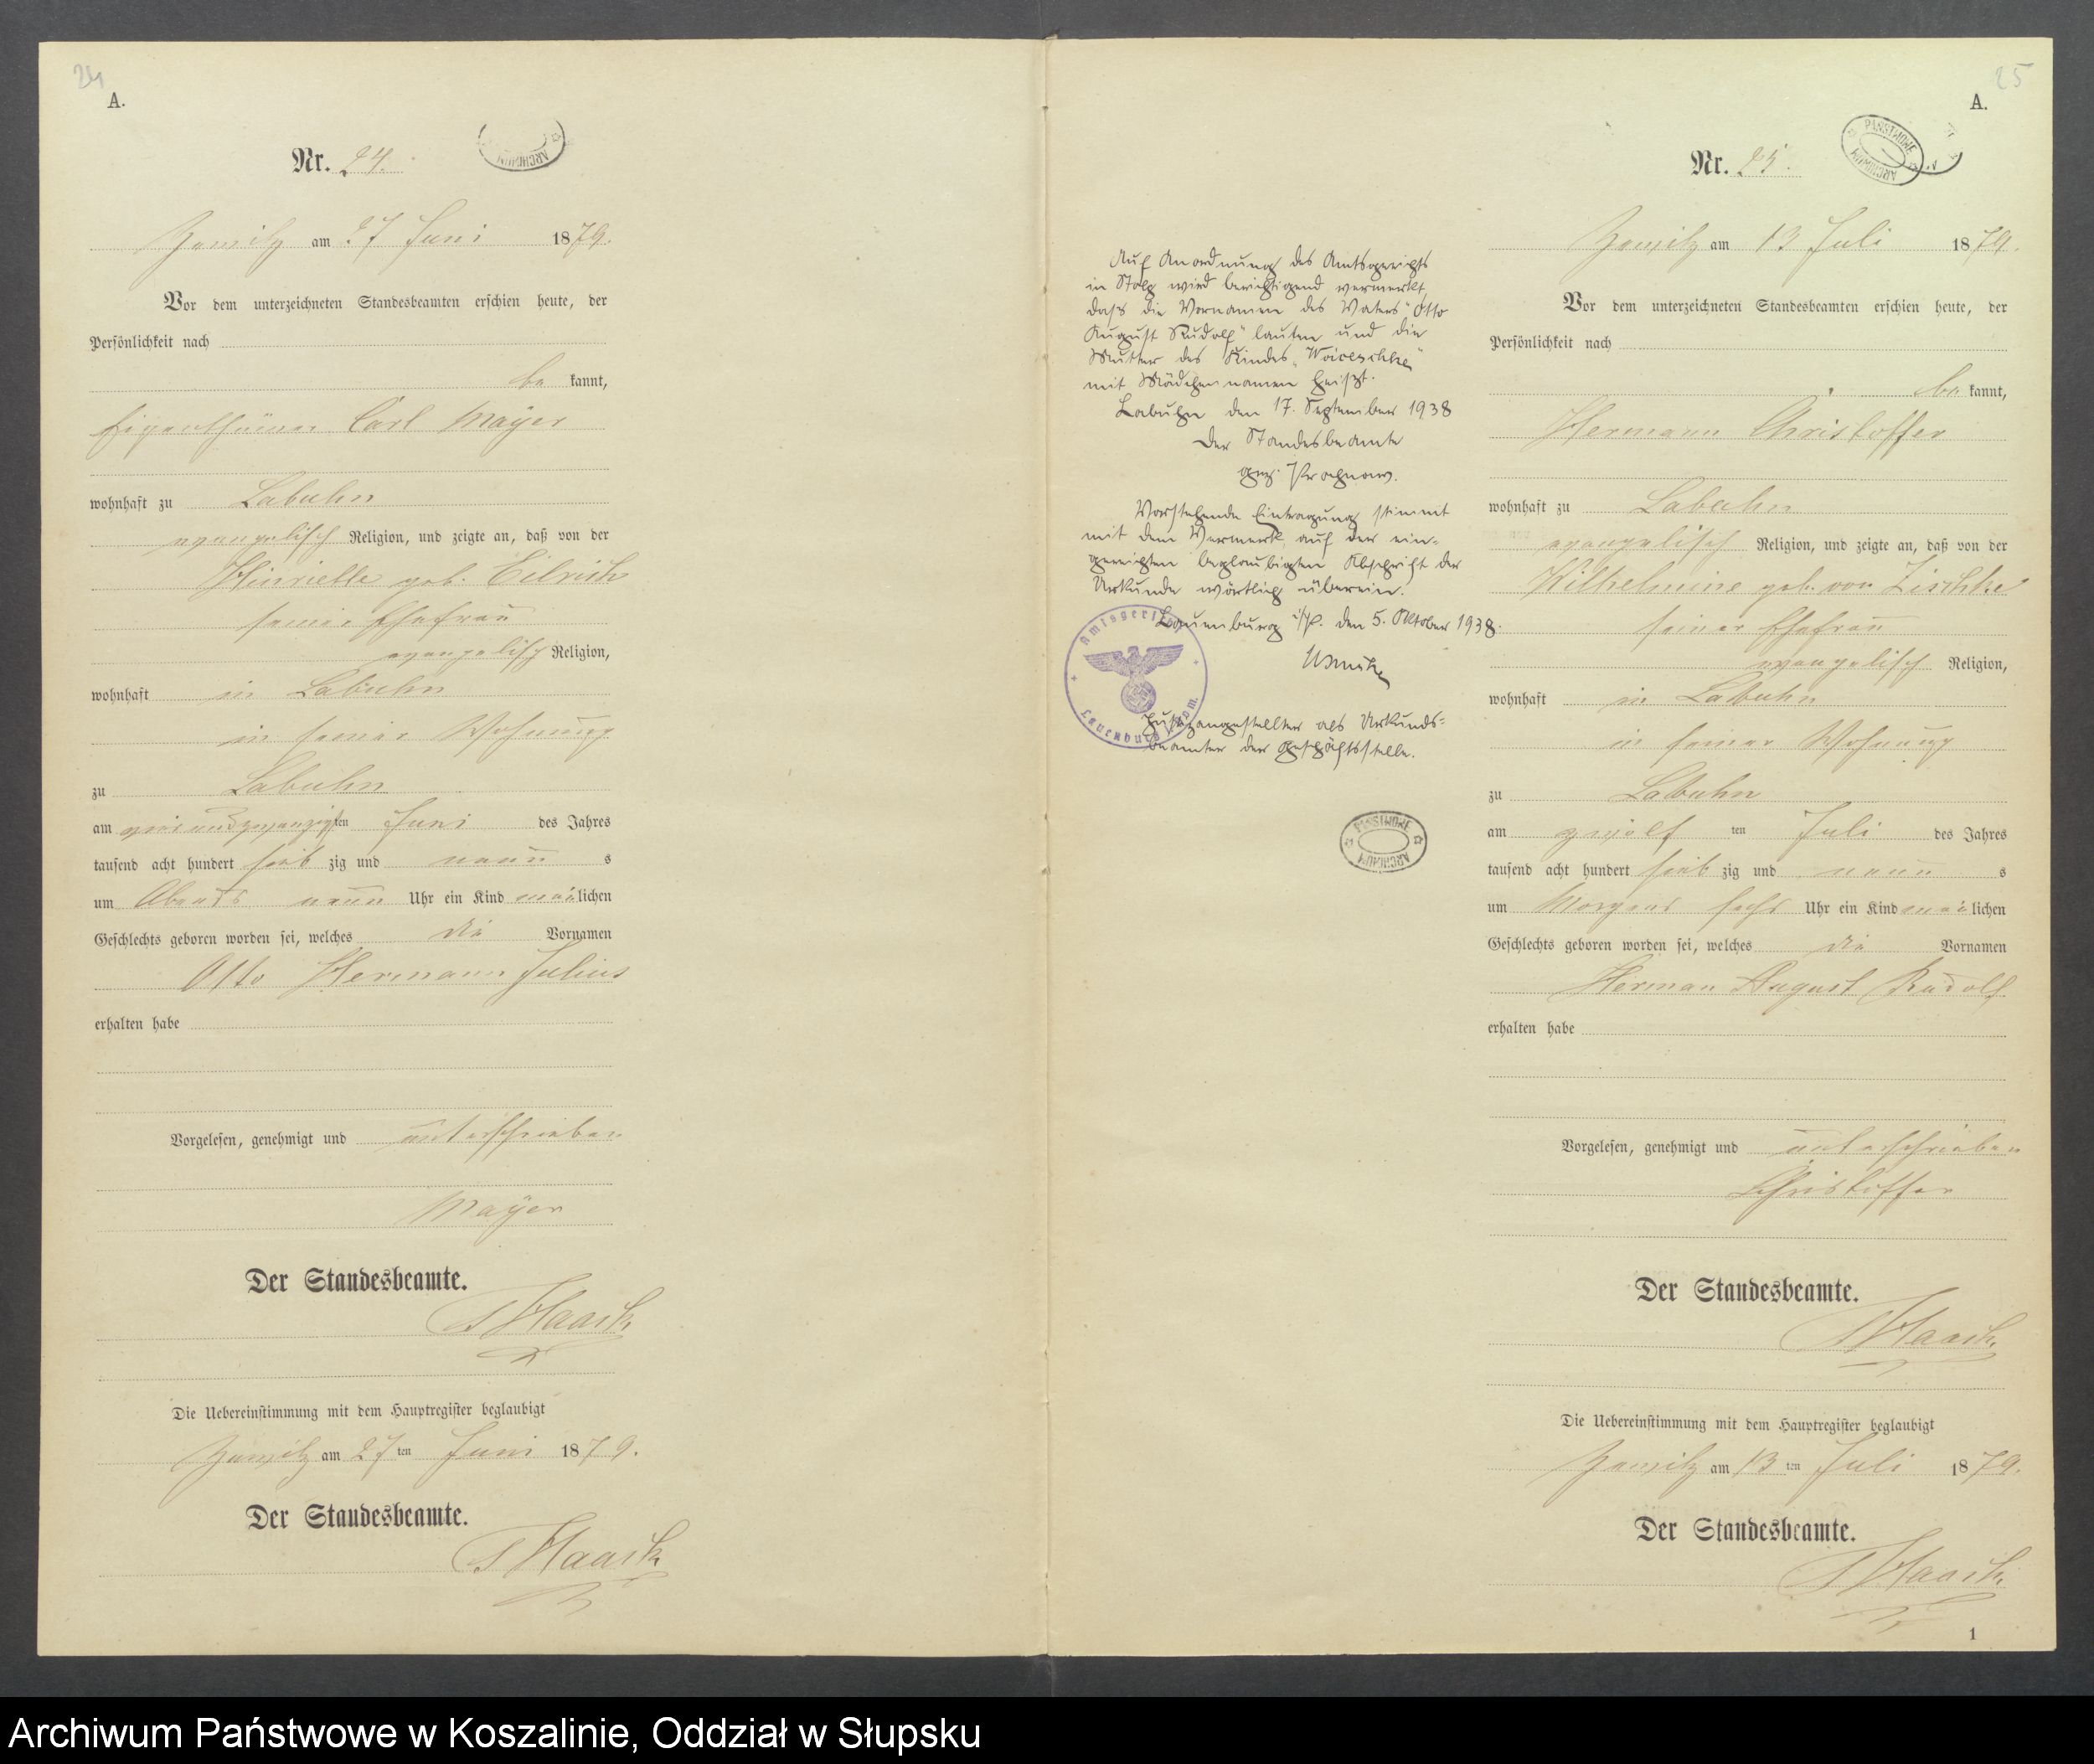 24
A.
Nr. 24.
ARCHIWUM
Zewitz am 27 Juni 1879.
Vor dem unterzeichneten Standesbeamten erschien heute, der
Persönlichkeit nach
be kannt,
Eigenthümer Carl Mayer
wohnhaft zu Labuhn
evangelisch Religion, und zeigte an, daß von der
geb.
seiner Ehefrau
evangelisch Religion,
wohnhaft in Labuhn
in seiner Wohnung
zu Labuhn
am ten Juni des Jahres
tausend acht hundert sieb zig und neun s
um Abends neun Uhr ein Kind männlichen
Geschlechts geboren worden sei, welches die Vornamen
Otto Hermann Julius
erhalten habe
Vorgelesen, genehmigt und unterschrieben
Mayer
Der Standesbeamte.
Haack
Die Uebereinstimmung mit dem Hauptregister beglaubigt
Zewitz am 27 ten Juni 1879.
Der Standesbeamte.
Haack
Auf Anordnung des Amtsgerichts
in Stolp wird berichtigend vermerkt,
dass die Vornamen des Vaters "Otto
August Rudolf" lauten und die
Mutter des Kindes
mit Mädchennamen heißt.
Labuhn den 17. September 1938
Der Standesbeamte
gez. Prochnow.
Vorstehende Eintragung stimmt
mit dem Vermerk auf der ein-
gereichten beglaubigten Abschrift der
Urkunde wörtlich überein.
Lauenburg i/P. den 5. Oktober 1938.
Justizangestellter als Urkunds-
beamter der Geschäftsstelle.
Amtsgericht
Lauenburg Pom.
PAŃSTWOWE
ARCHIWUM
25
A.
Nr. 25.
PAŃSTWOWE
ARCHIWUM
Zewitz am 13 Juli 1879.
Vor dem unterzeichneten Standesbeamten erschien heute, der
Persönlichkeit nach
be kannt,
Hermann Christoffer
wohnhaft zu Labuhn
evangelisch Religion, und zeigte an, daß von der
Wilhelmine geb. von Zischke
seiner Ehefrau
evangelisch Religion,
wohnhaft in Labuhn
in seiner Wohnung
zu Labuhn
am zwölf ten Juli des Jahres
tausend acht hundert sieb zig und neun s
um Morgens sechs Uhr ein Kind männlichen
Geschlechts geboren worden sei, welches die Vornamen
Herman August Rudolf
erhalten habe
Vorgelesen, genehmigt und unterschrieben
Christoffer
Der Standesbeamte.
Haack
Die Uebereinstimmung mit dem Hauptregister beglaubigt
Zewitz am 13 ten Juli 1879.
Der Standesbeamte.
Haack
1
Archiwum Państwowe w Koszalinie, Oddział w Słupsku